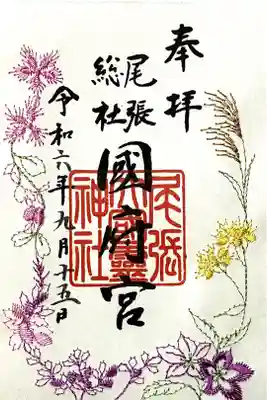 奉拝
尾張
総社
國府宮
令和六年九月十五日
尾張
大國靈
神社